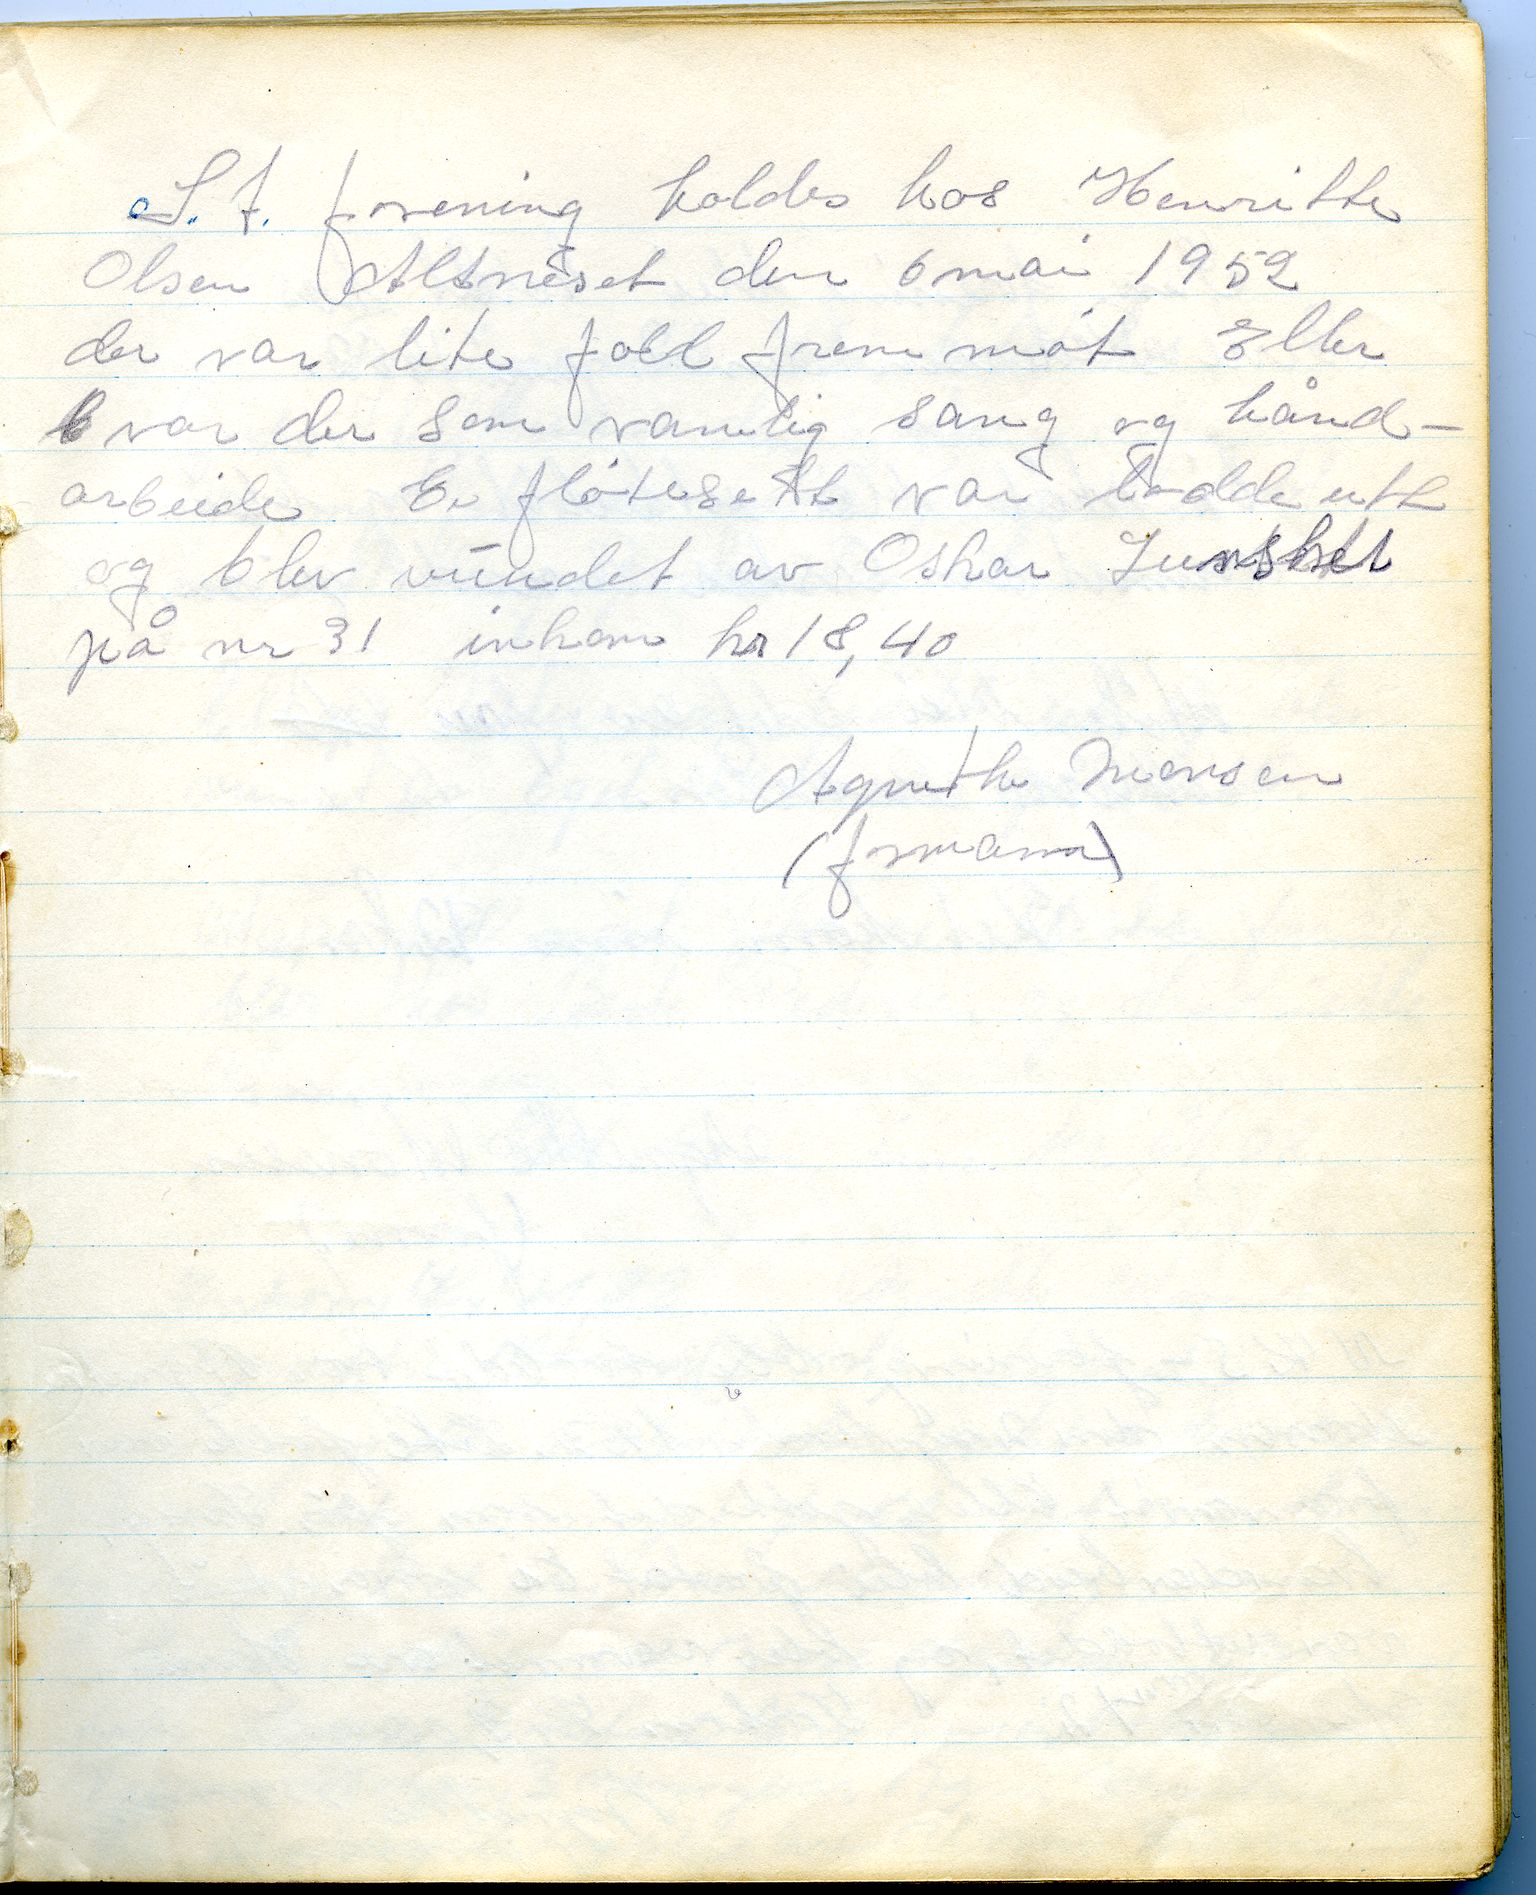 S. f. forening holdes hos Henritte
Olsen Altneset den 6 mai 1952
der var lite folk frem møt Eller
var der som vanelig sang og hånd-
arbeide E. fløtesett var lodde utt
og blev vundet av Oskar
på nr 31 inkom kr 18,40
Agnethe Monsen
(formann)